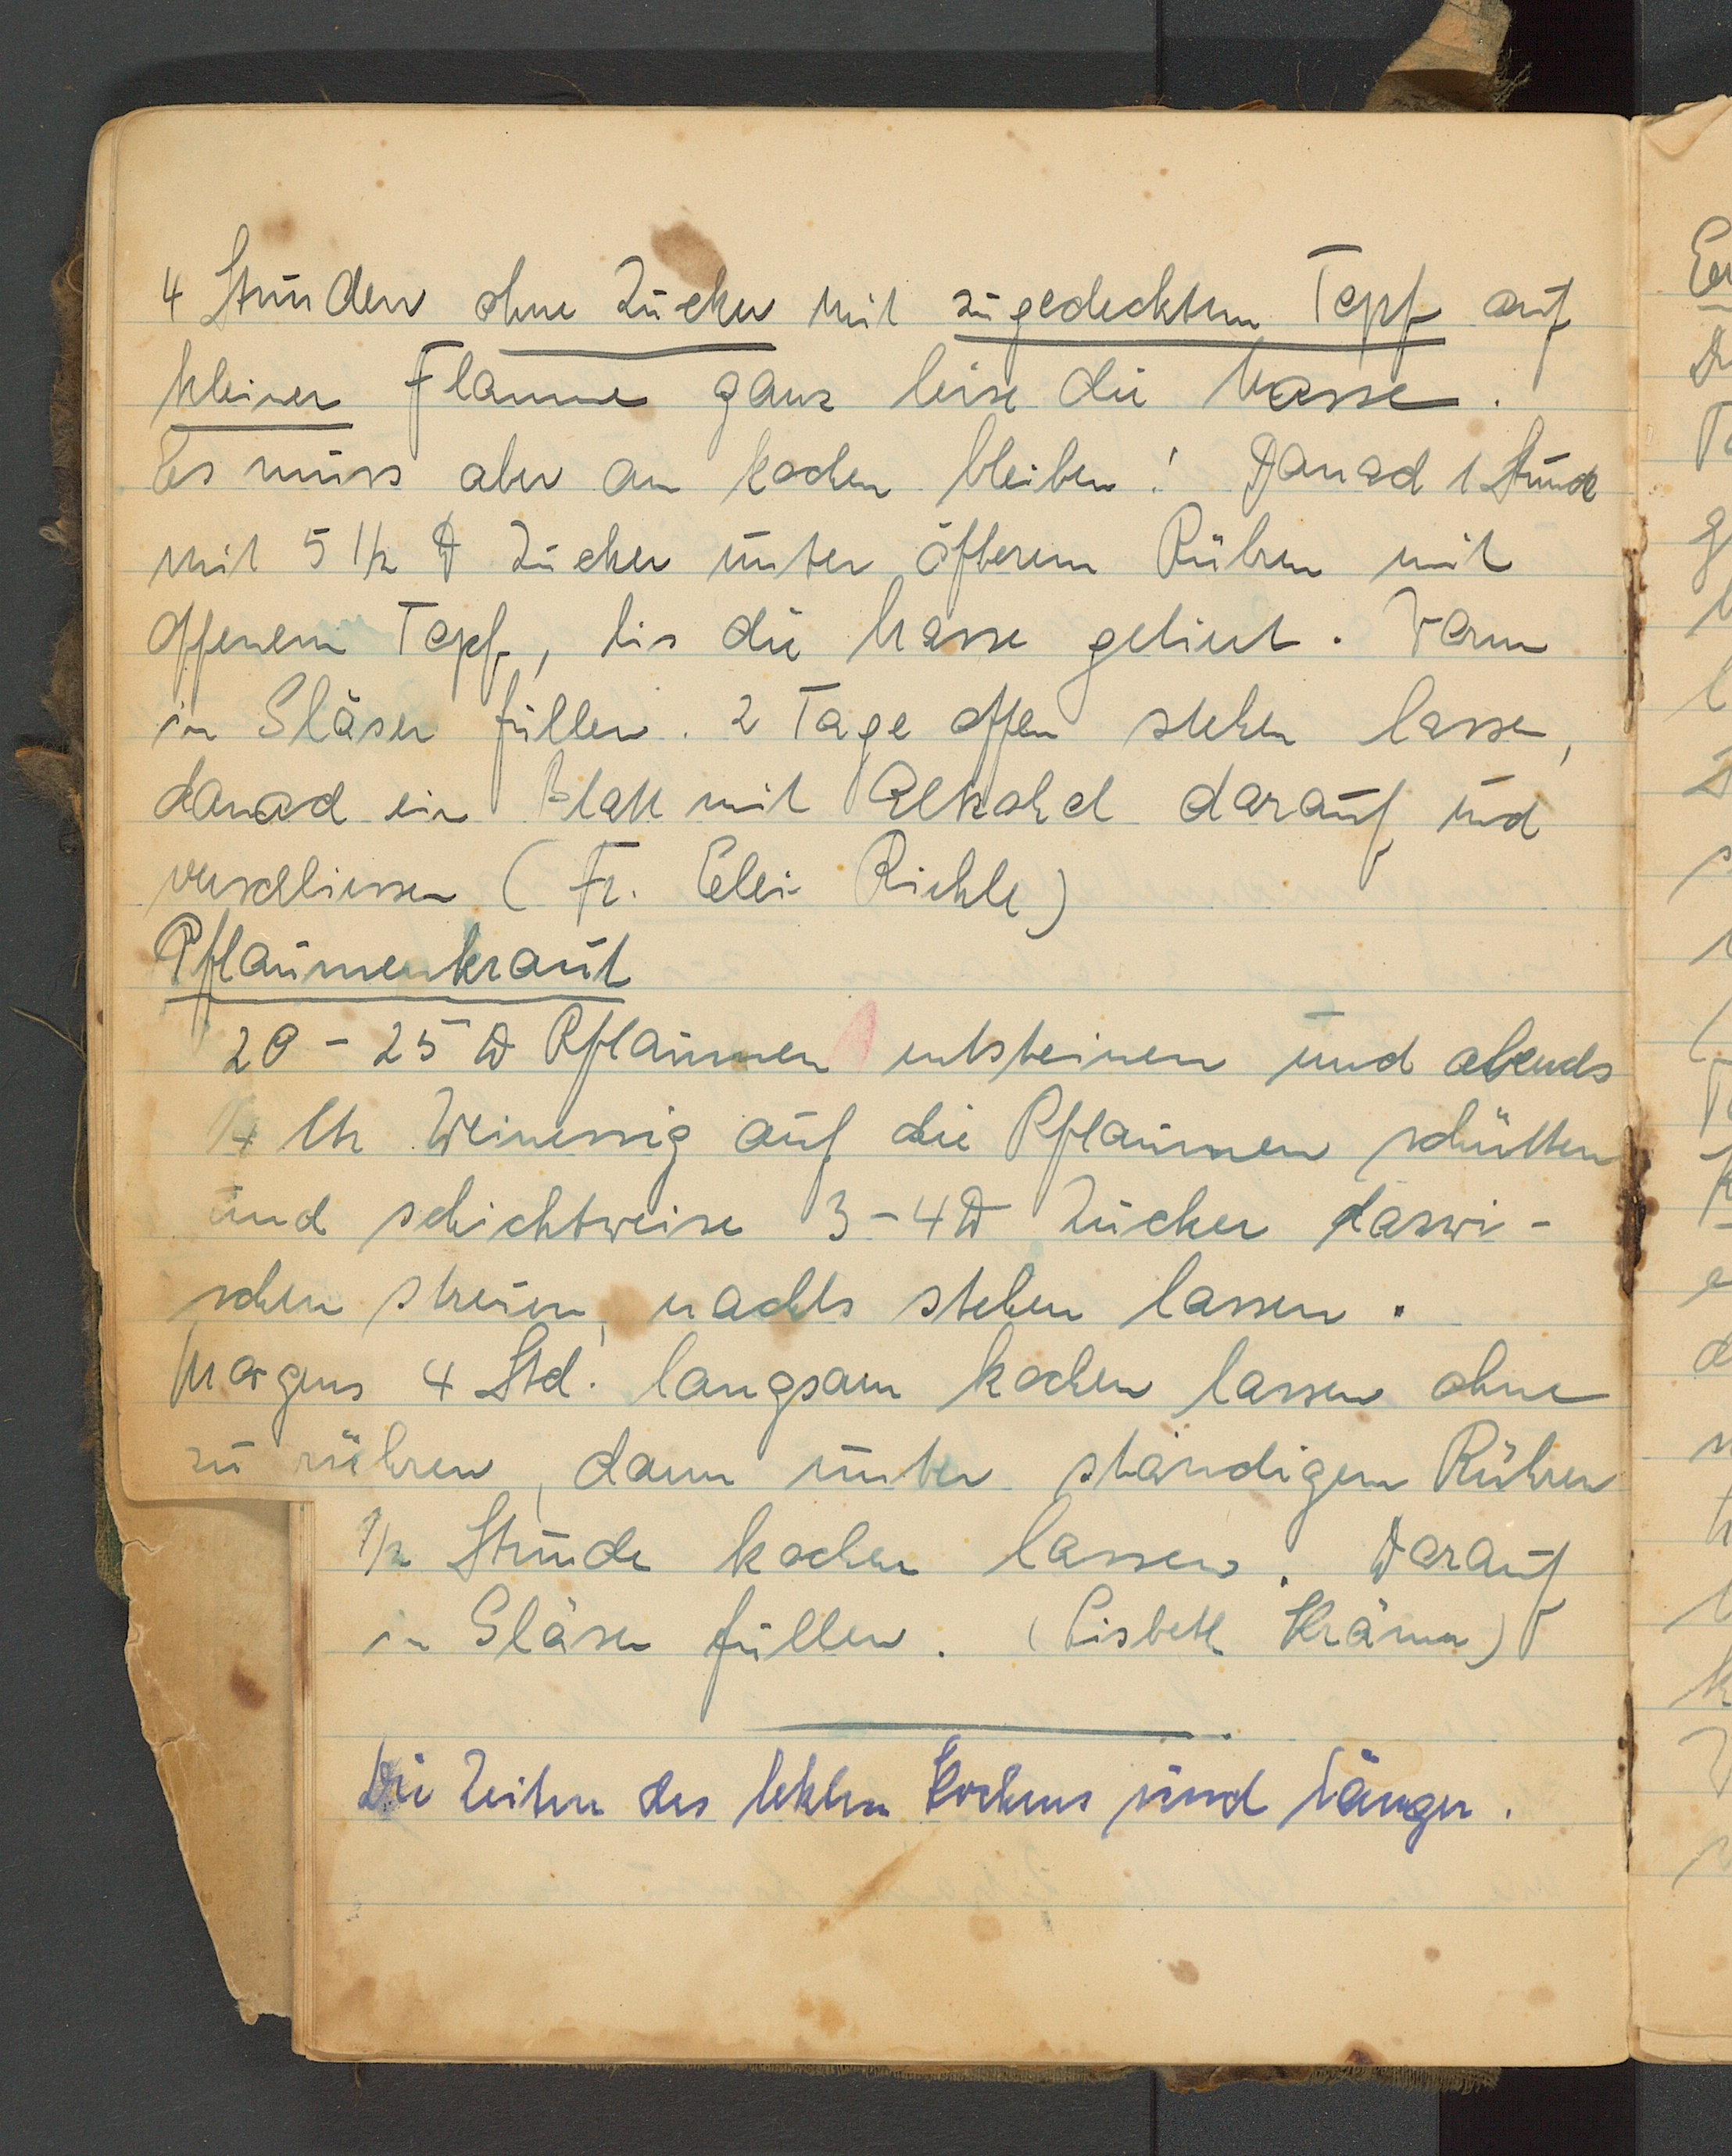 4 Stunden ohne Zucker mit zugedecktem Topf auf
kleiner Flamme ganz leise die Masse.
Es muss aber am kochen bleiben! Danach 1 Stunde
mit 5 1/2 ℔ Zucker unter öfterem Rühren mit
offenem Topf, bis die Masse geliert. Warm
in Gläser füllen. 2 Tage offen stehen lassen,
danach ein Blatt mit Alkohol darauf und
verschliessen (Fr. Riehle)
Pflaumenkraut
20 - 25 ℔ Pflaumen entsteinen und abends
1/4 ltr Weinessig auf die Pflaumen schütten
und schichtweise 3-4 ℔ Zucker daswi-
schen streuen, nachts stehen lassen.
Morgens 4 Std. langsam kochen lassen ohne
zu rühren, dann unter ständigem Rühren
1/2 Stunde kochen lassen. Darauf
in Gläser füllen. (Lisbeth Krämer)
Die Zeiten des letzten Kochens sind länger.